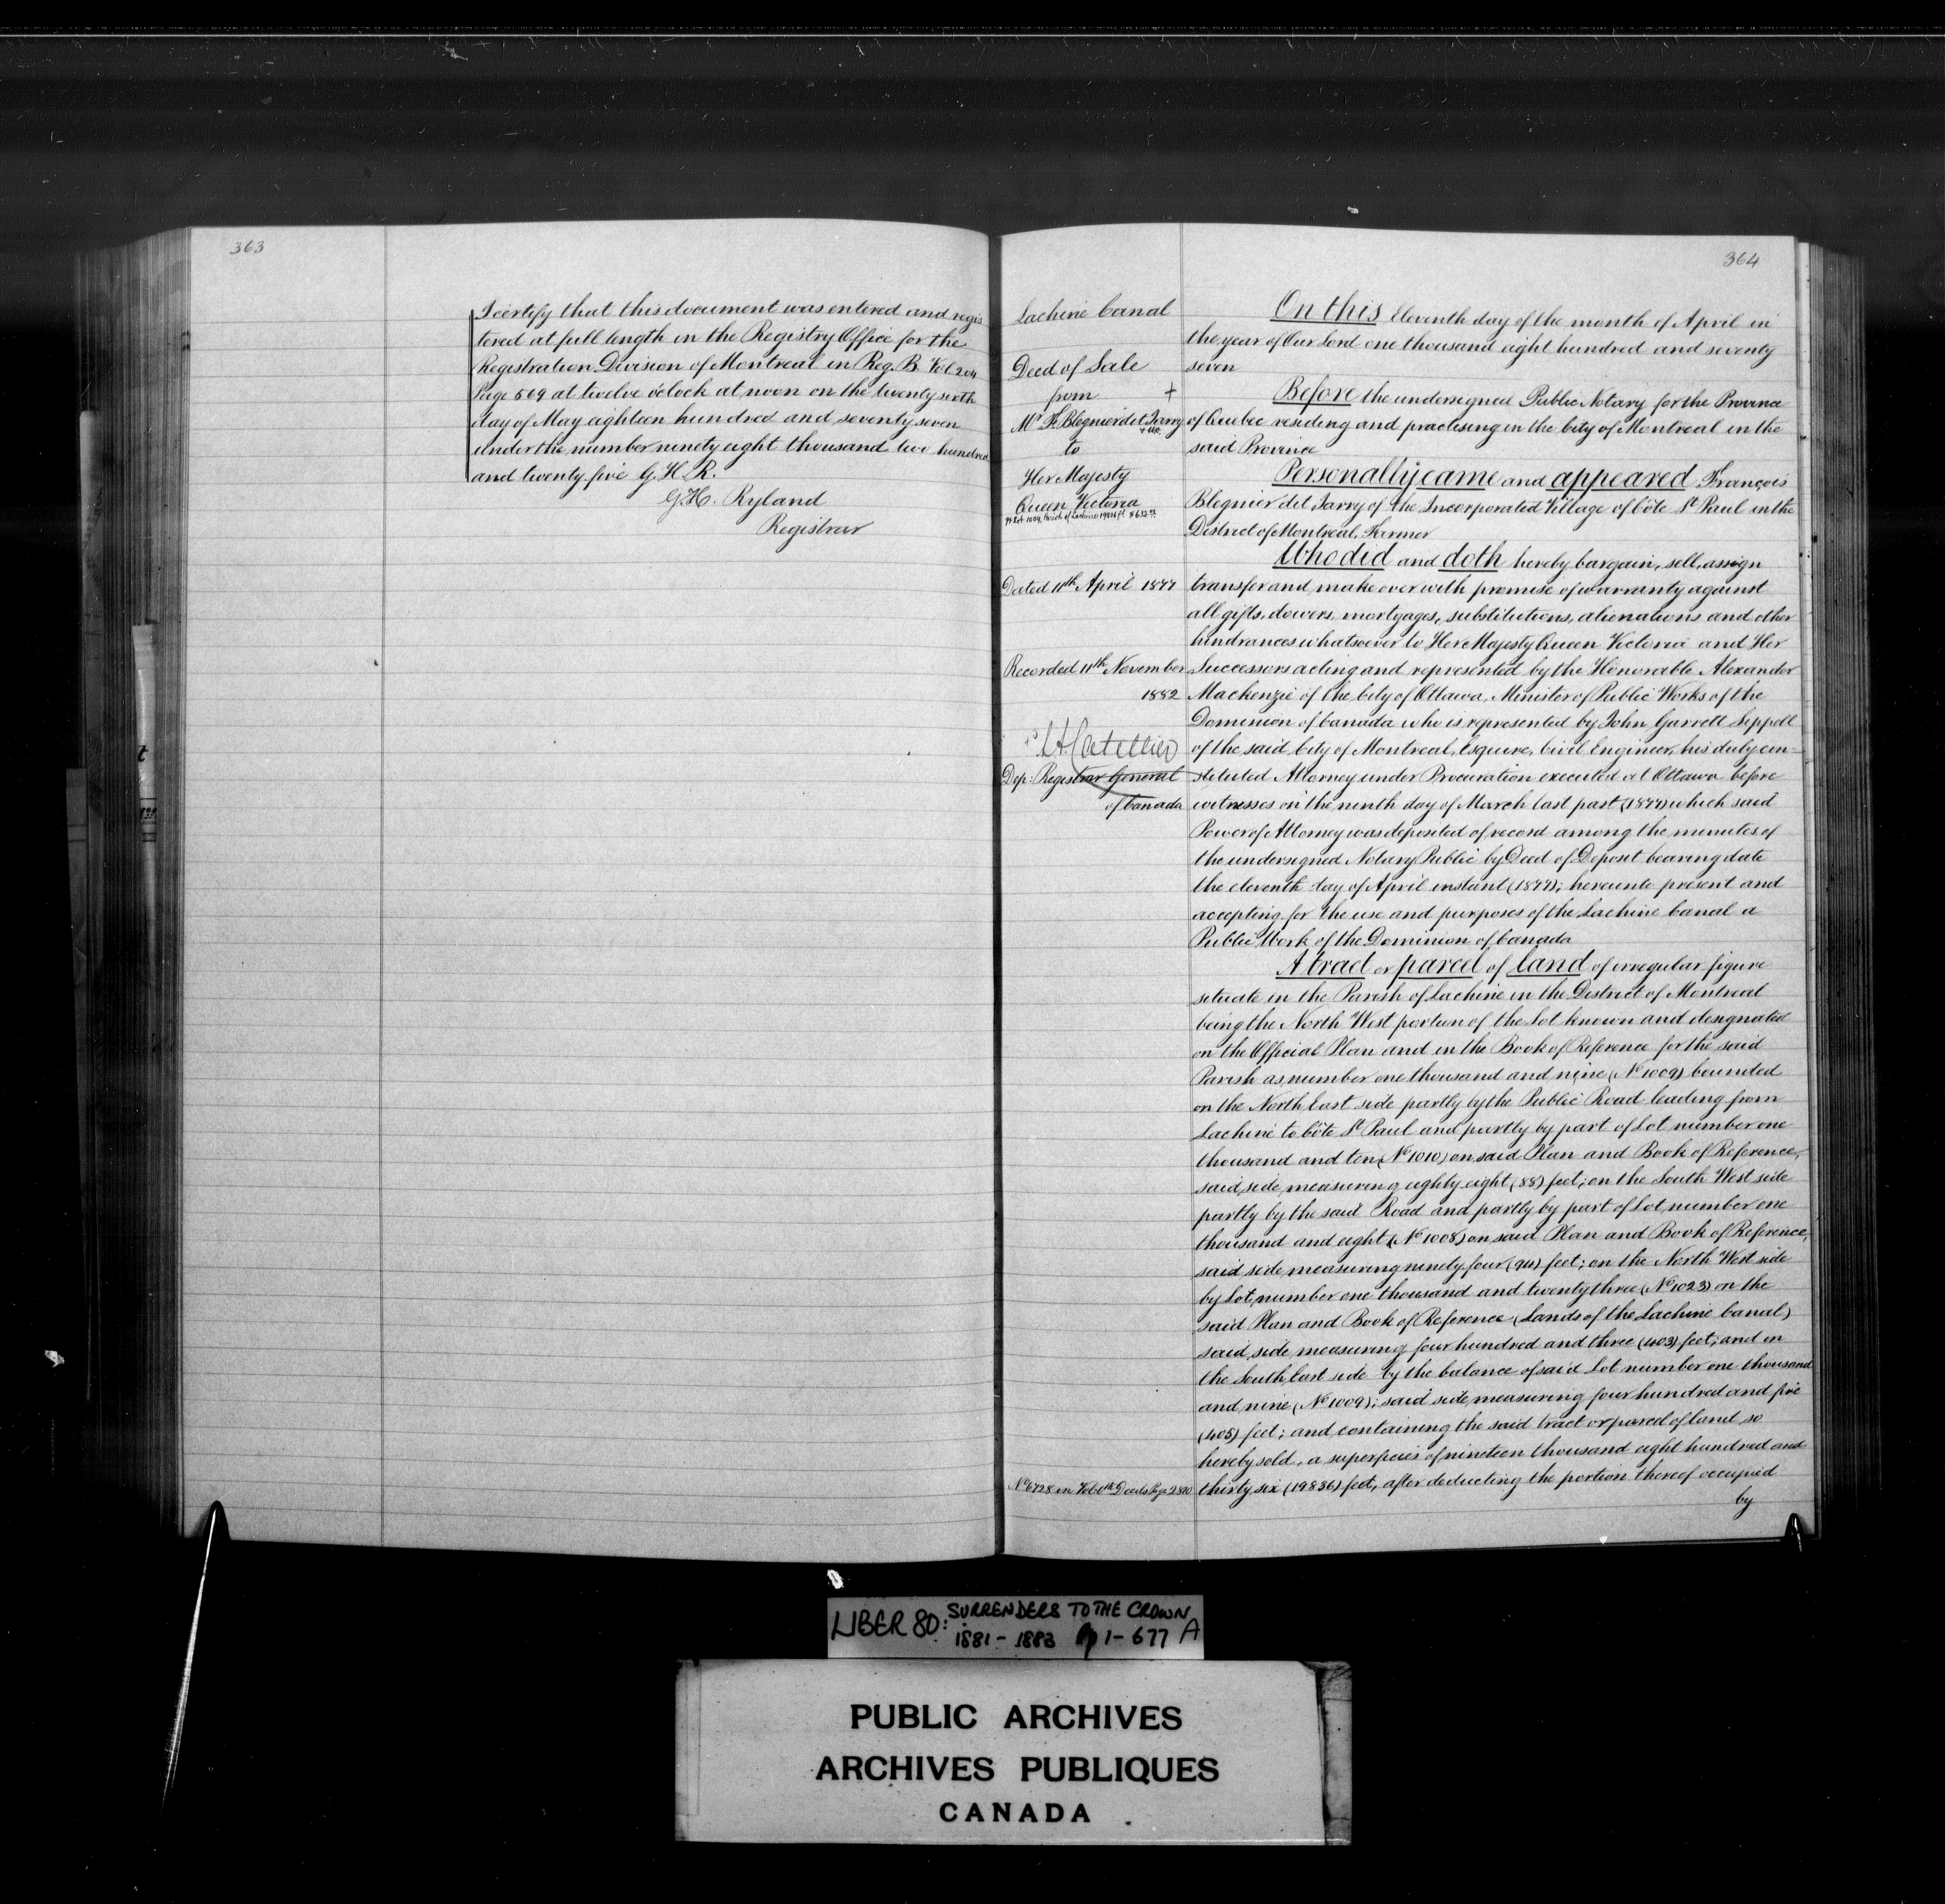 363
I certify that this document was entered and regis
tered at full length in the Registry Office for the
Registration Division of Montreal in Reg. B. Vol 204
Page 569 at twelve o'clock at noon on the twenty sixth
day of May eighteen hundred and seventy seven
under the number ninety eight thousand two hundred
and twenty five G. H. R.
G. H. Ryland
Registrar
364
Lachine Canal
Deed of Sale
from
Mr. F. Blegnier dit Jarry
to
Her Majesty
Queen Victoria
Pt Lot 1009, Parish of Lachine
Dated 11th April 1877
Recorded 11th November
1882
Dep: Registrar General
of Canada
No 6728 in Vol
On this Eleventh day of the month of April in
the year of Our Lord one thousand eight hundred and seventy
seven
Before the undersigned Public Notary for the Province
of Quebec residing and practising in the City of Montreal in the
said Province
Personally came and appeared François
Blegnier dit Jarry of the Incorporated Village of Côte St Paul in the
District of Montreal, Farmer
Who did and doth hereby bargain, sell, assign
transfer and make over with promise of warranty against
all gifts, dowers, mortgages, substitutions, alienations and other
hindrances whatsoever to Her Majesty Queen Victoria and Her
Successors acting and represented by the Honorable Alexander
Mackenzie of the City of Ottawa, Minister of Public Works of the
Dominion of Canada who is represented by John Garrett Sippell
of the said City of Montreal, Esquire, Civil Engineer, his duly con-
stituted Attorney under Procuration executed at Ottawa before
witnesses on the ninth day of March last past (1877) which said
Power of Attorney was deposited of record among the minutes of
the undersigned Notary Public by Deed of Deposit bearing date
the eleventh day of April instant (1877); hereunto present and
accepting for the use and purposes of the Lachine Canal a
Public Work of the Dominion of Canada
A tract or parcel of land of irregular figure
situate in the Parish of Lachine in the District of Montreal
being the North West portion of the Lot known and designated
on the Official Plan and in the Book of Reference for the said
Parish as number one thousand and nine (No 1009) bounded
on the North East side partly by the Public Road leading from
Lachine to Côte St Paul and partly by part of Lot number one
thousand and ten (No 1010) on said Plan and Book of Reference,
said side measuring eighty eight (88) feet; on the South West side
partly by the said Road and partly by part of Lot number one
thousand and eight (No 1008) on said Plan and Book of Reference,
said side measuring ninety four (94) feet; on the North West side
by Lot number one thousand and twenty three (No 1023) on the
said Plan and Book of Reference (Lands of the Lachine Canal)
said side measuring four hundred and three (403) feet; and on
the South East side by the balance of said Lot number one thousand
and nine (No 1009); said side measuring four hundred and five
(405) feet; and containing the said tract or parcel of land so
hereby sold, a superficies of nineteen thousand eight hundred and
thirty six (19836) feet, after deducting the portion thereof occupied
by
LIBER 80: SURRENDERS TO THE CROWN
1881 - 1883 pp 1 - 677 A
PUBLIC ARCHIVES
ARCHIVES PUBLIQUES
CANADA